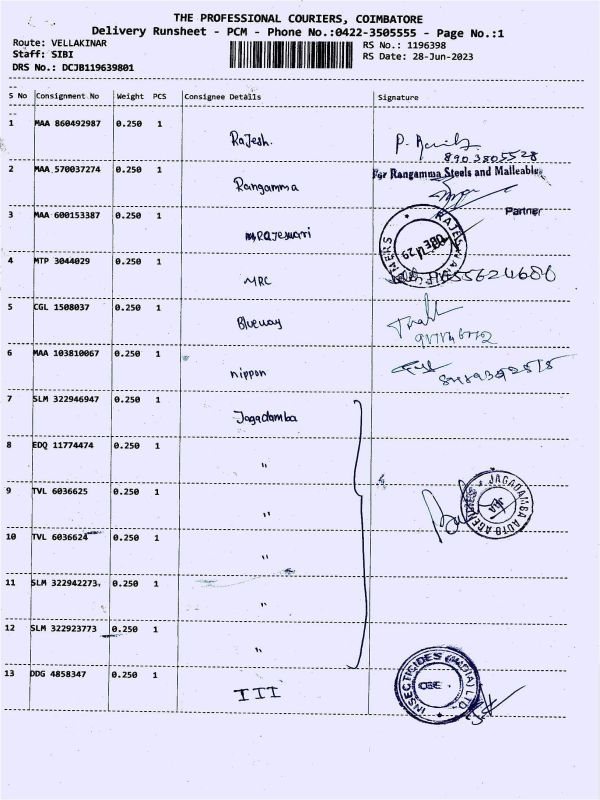 THE PROFESSIONAL COURIERS, COIMBATORE
Delivery Runsheet - PCM - Phone No.:0422-3505555 - Page No.:1
Route: VELLAKINAR RS No.: 1196398
Staff: SIBI RS Date: 28-Jun-2023
DRS No.: DCJB119639801
S No Consignment No Weight PCS Consignee Details Signature
1 MAA 860492987 0.250 1 Rajesh.
8903805528
2 MAA 570037274 0.250 1 Rangamma For Rangamma Steels and Malleables
Partner
3 MAA 600153387 0.250 1 Rajeswari
4 MTP 3044029 0.250 1 MRC
5 CGL 1508037 0.250 1 Blueway
6 MAA 103810067 0.250 1 nippon
7 SLM 322946947 0.250 1 Jagadamba
8 EDQ 11774474 0.250 1 "
9 TVL 6036625 0.250 1 " JAGADAMBA AUTO AGENCIES
10 TVL 6036624 0.250 1 "
11 SLM 322942273 0.250 1 "
12 SLM 322923773 0.250 1 "
13 DDG 4858347 0.250 1 III INSECTICIDES (INDIA) LTD CBE